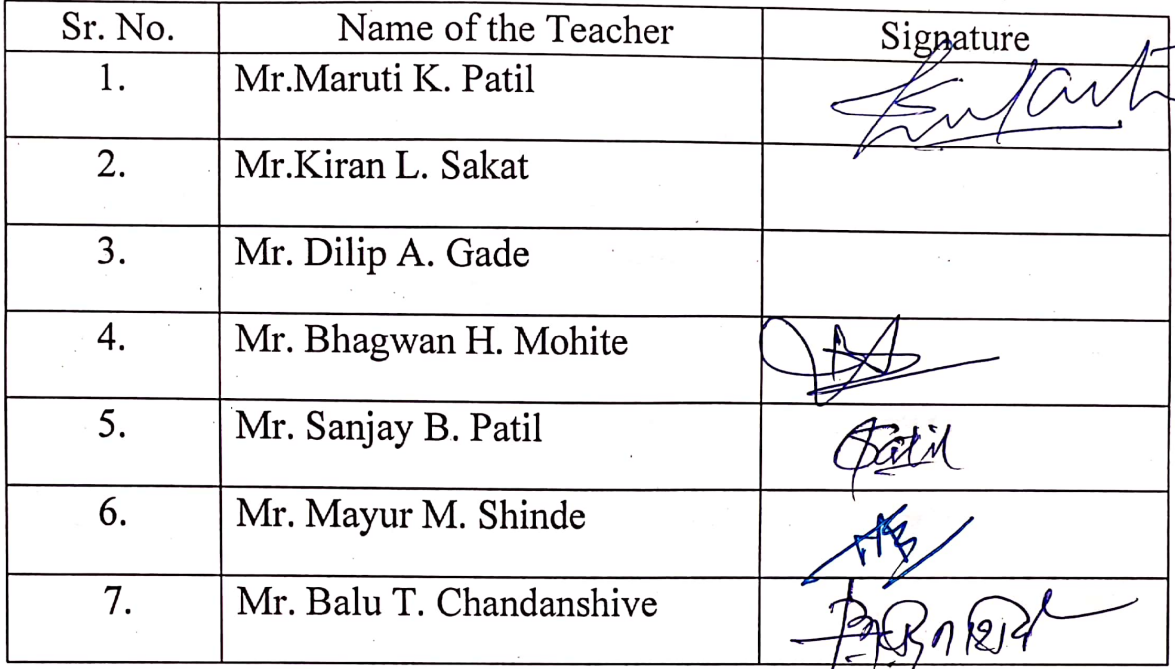 Sr. No. Name of the Teacher Signature
1. Mr.Maruti K. Patil
2. Mr.Kiran L. Sakat
3. Mr. Dilip A. Gade
4. Mr. Bhagwan H. Mohite
5. Mr. Sanjay B. Patil Patil
6. Mr. Mayur M. Shinde
7. Mr. Balu T. Chandanshive